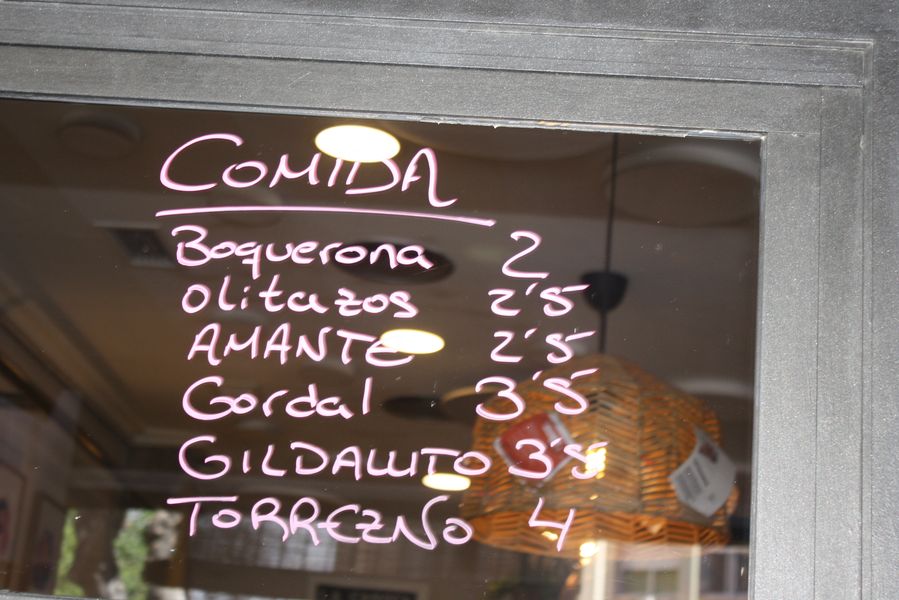 COMIDA
Boquerona 2
Olitazos 2'5
AMANTE 2'5
Gordal 3'5
GILDALLITO 3'5
TORREZNO 4